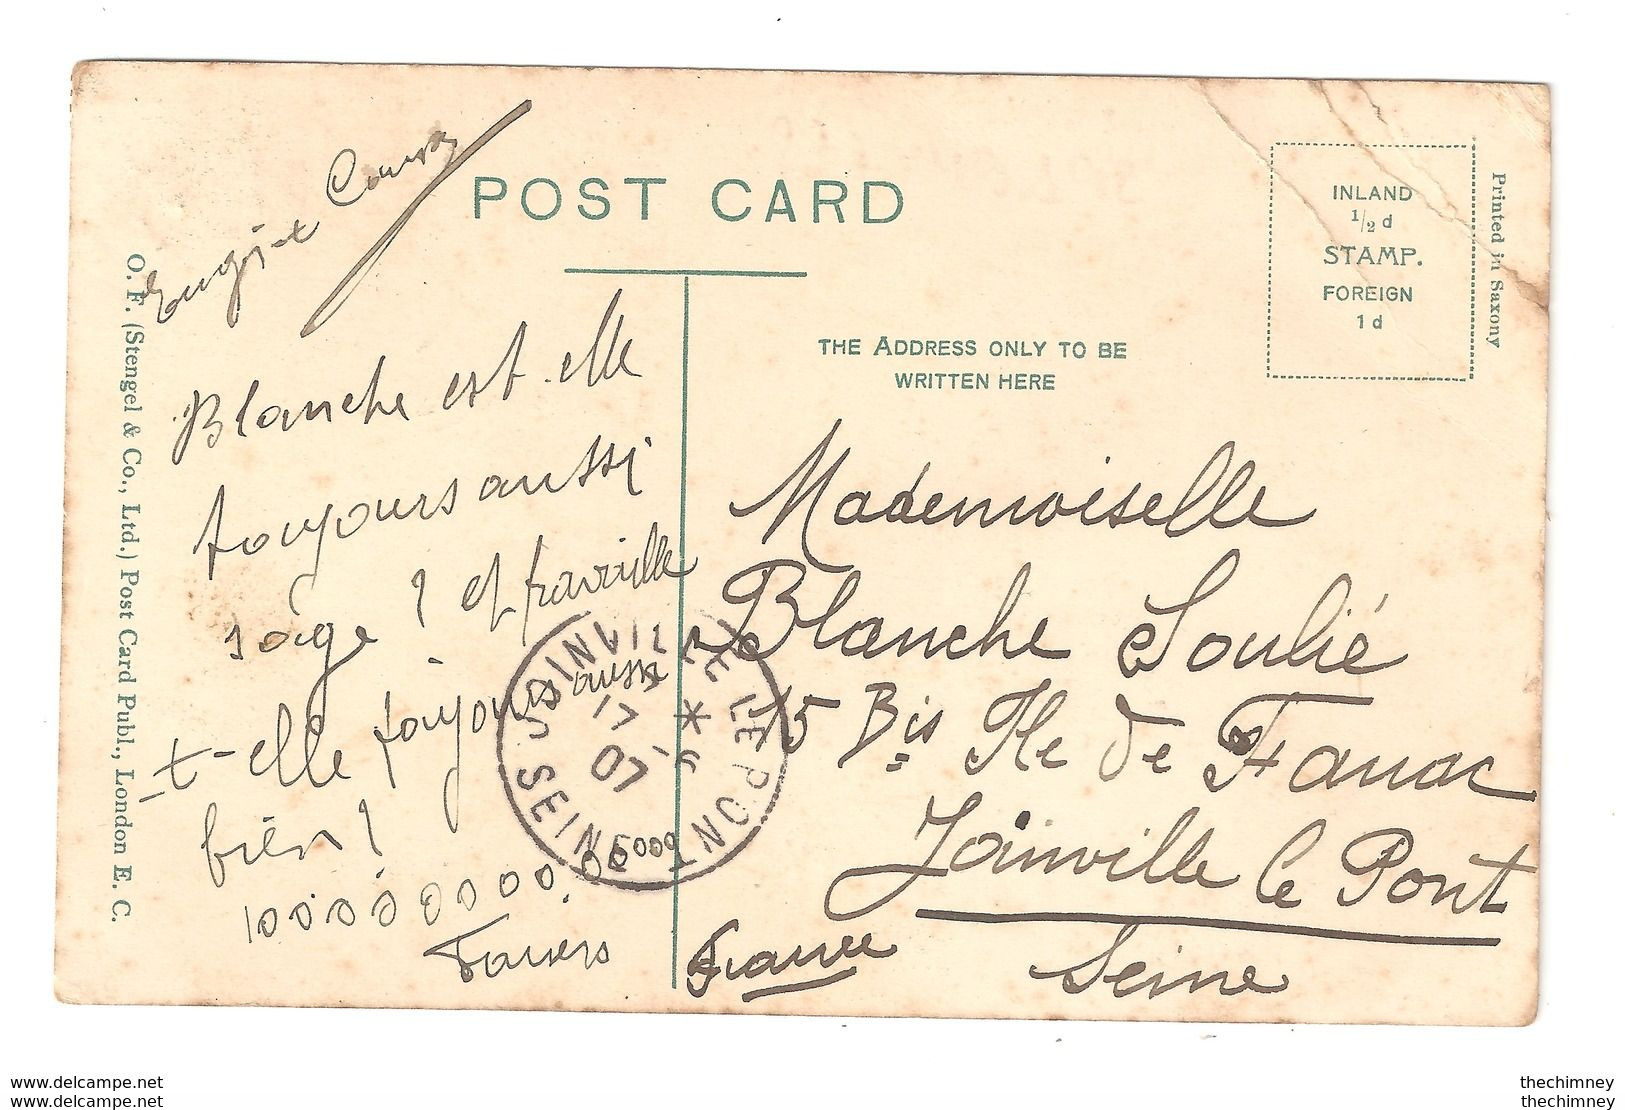 POST CARD
INLAND
1/2 d
STAMP.
FOREIGN
1 d
Printed in Saxony
THE ADDRESS ONLY TO BE
WRITTEN HERE
O. F. (Stengel & Co., Ltd.) Post Card Publ., London E. C.
Blanche est-elle
toujours aussi
sage ? et travaille
-t-elle toujours aussi
bien ?
Mademoiselle
Blanche Soulié
15 Bis Ile de Fanac
Joinville le Pont
Seine
France
JOINVILLE LE PONT
17
07
SEINE
delcampe.net
delcampe.net
thechimney
thechimney